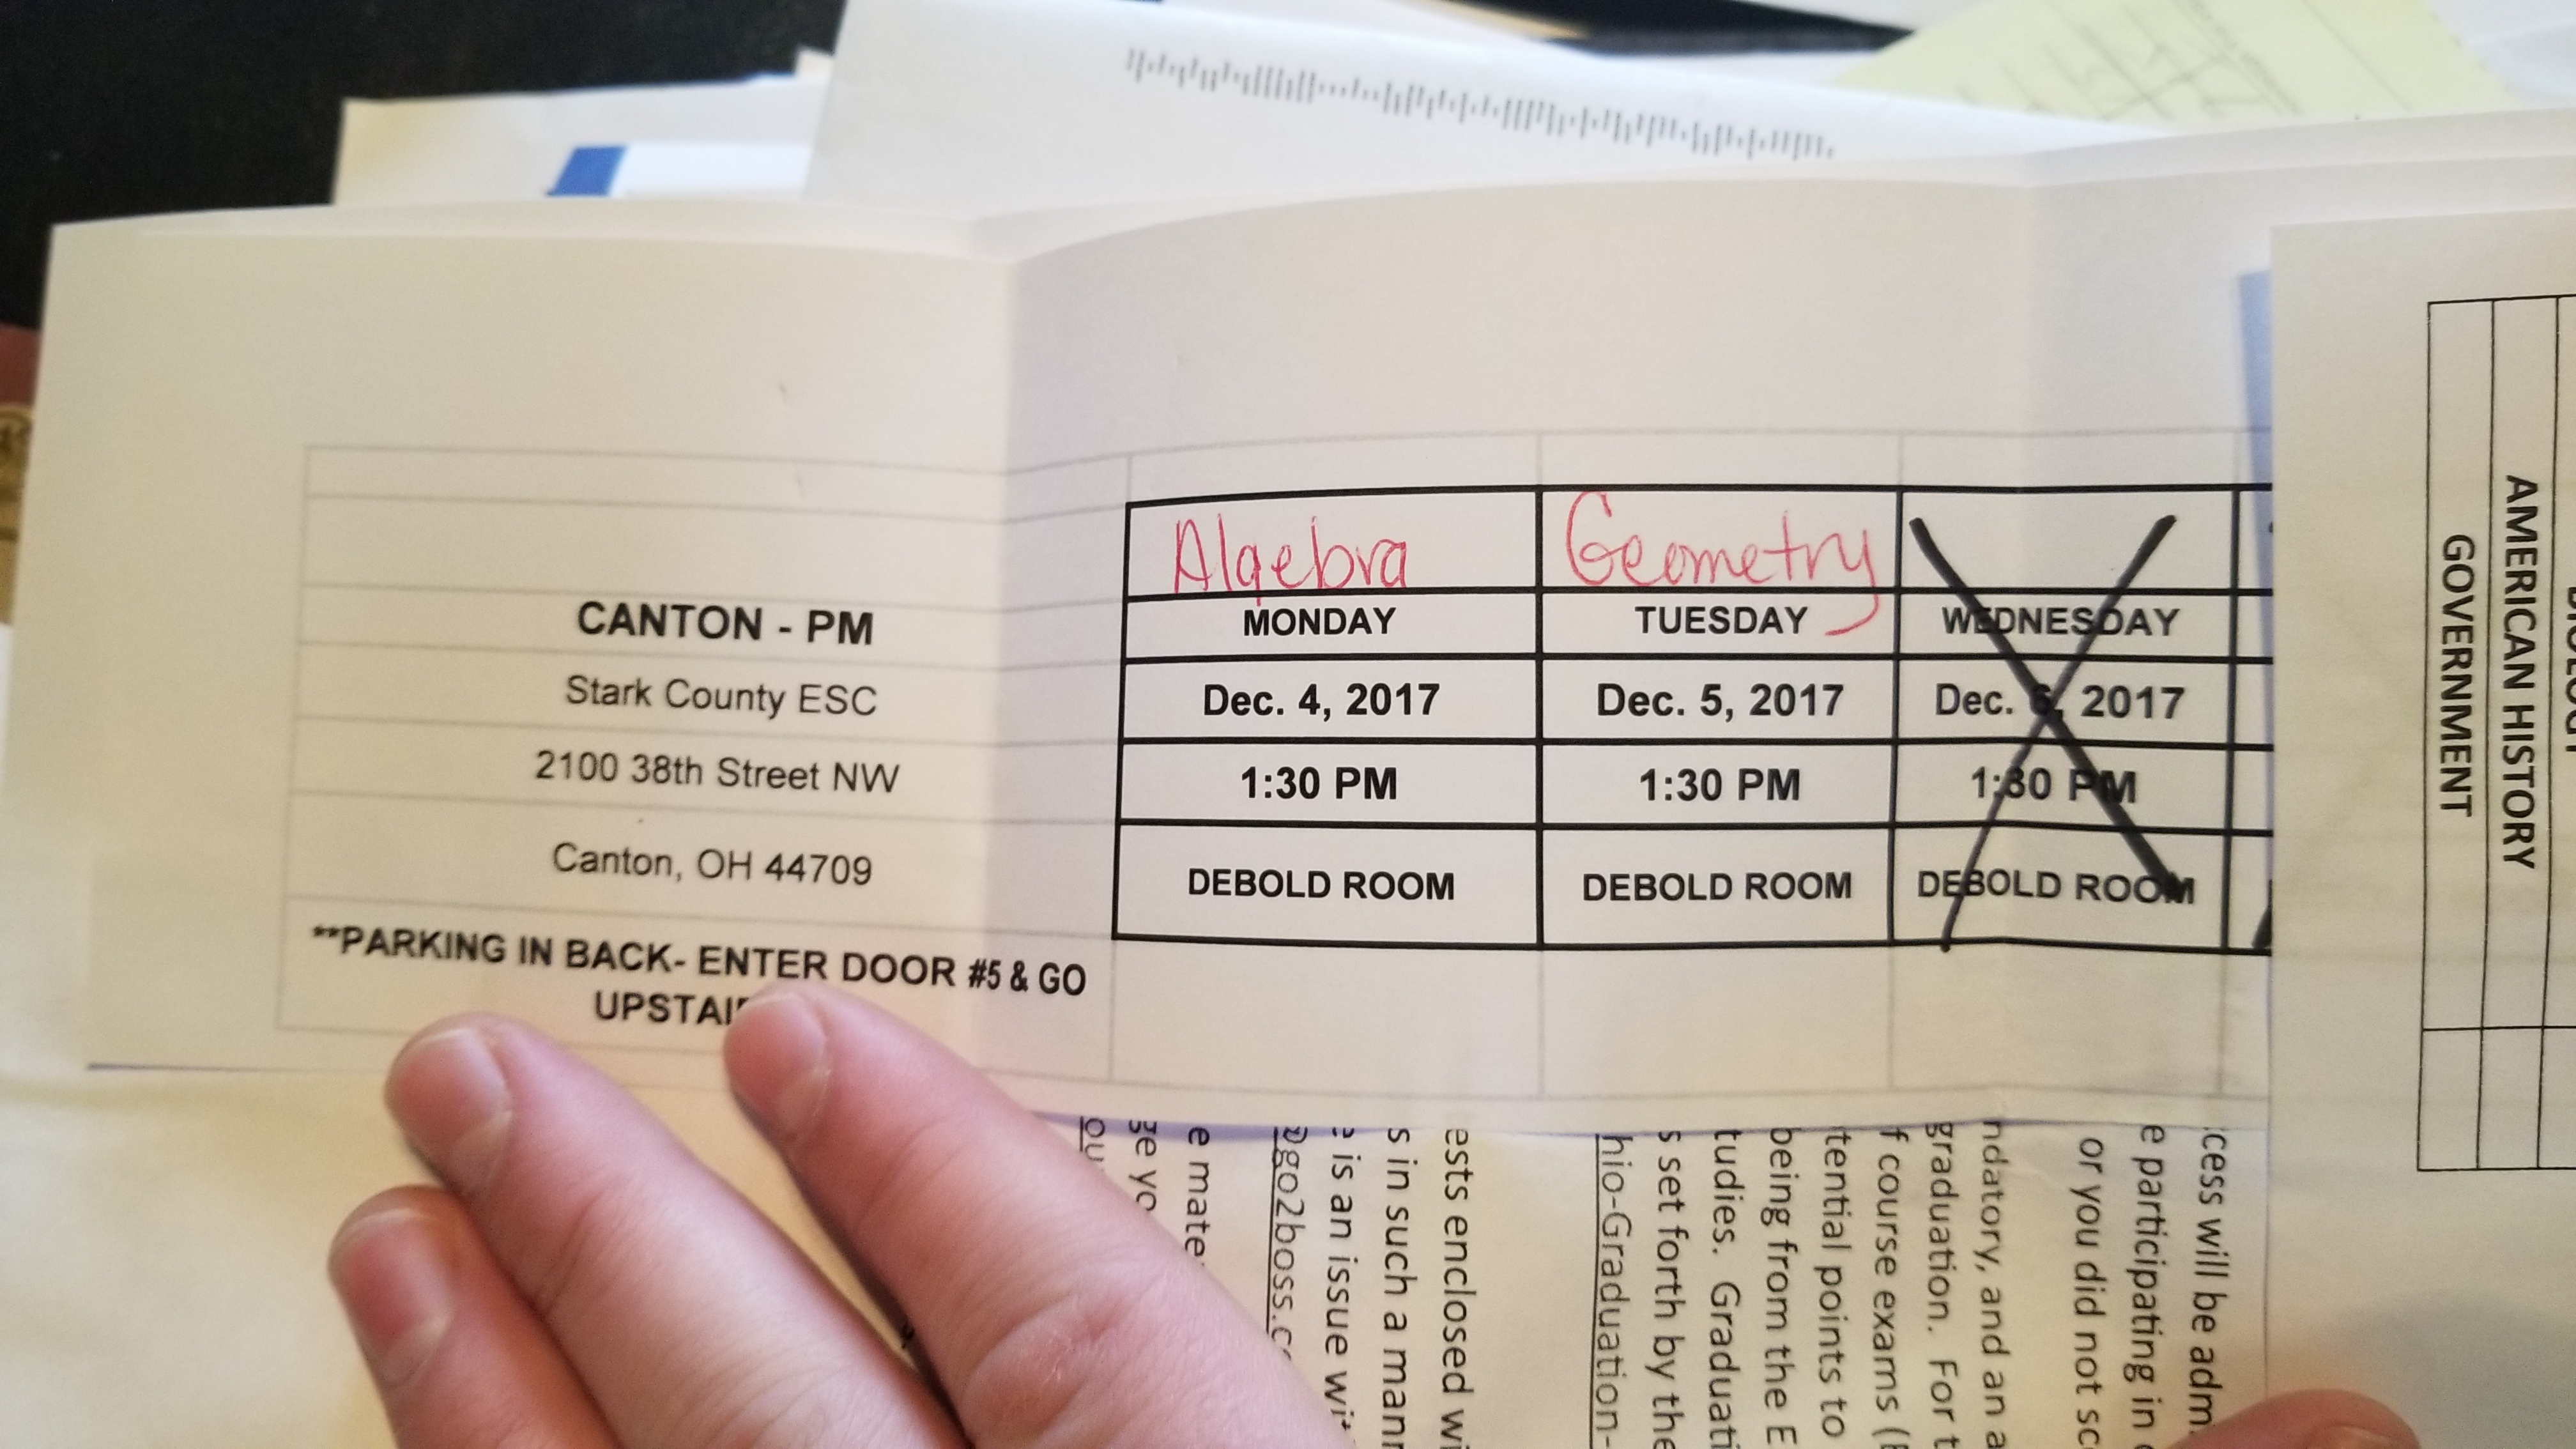 CANTON - PM
Stark County ESC
2100 38th Street NW
Canton, OH 44709
**PARKING IN BACK- ENTER DOOR #5 & GO
Algebra Geometry
MONDAY TUESDAY WEDNESDAY
Dec. 4, 2017 Dec. 5, 2017 Dec. 6, 2017
1:30 PM 1:30 PM 1:30 PM
DEBOLD ROOM DEBOLD ROOM DEBOLD ROOM
AMERICAN HISTORY
GOVERNMENT
cess will be adm
e participating in
or you did not sc
ndatory, and an a
graduation. For t
f course exams (
tential points to
being from the E
tudies. Graduati
s set forth by the
hio-Graduation-
ests enclosed wi
s in such a mann
is an issue wit
@go2boss.c
e mate
ge yo
ou